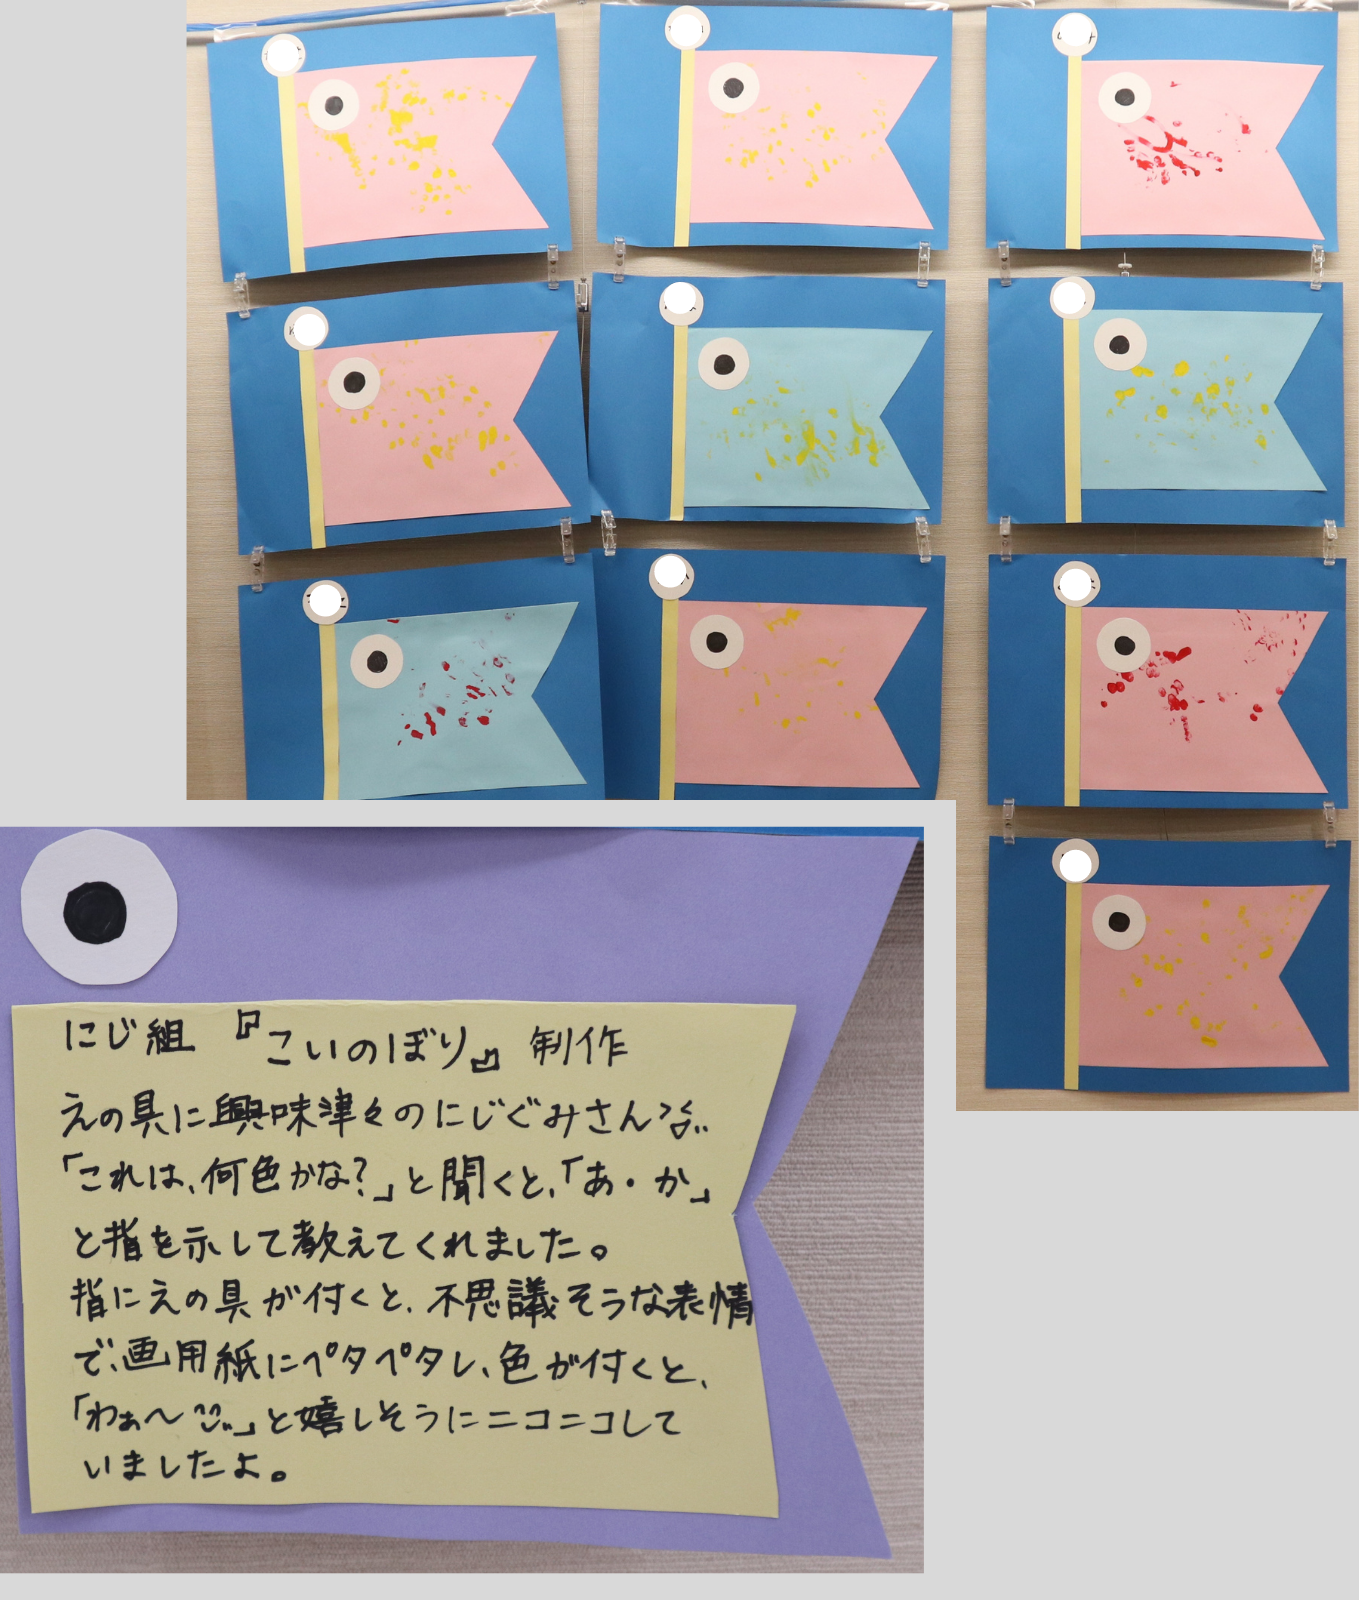 にじ組 『こいのぼり』 制作
えの具に興味津々のにじぐみさん
「これは、何色かな？」と聞くと、「あ・か」
と指を示して教えてくれました。
指にえの具が付くと、不思議そうな表情
で、画用紙にペタペタし、色が付くと、
「わぁ〜」と嬉しそうにニコニコして
いましたよ。